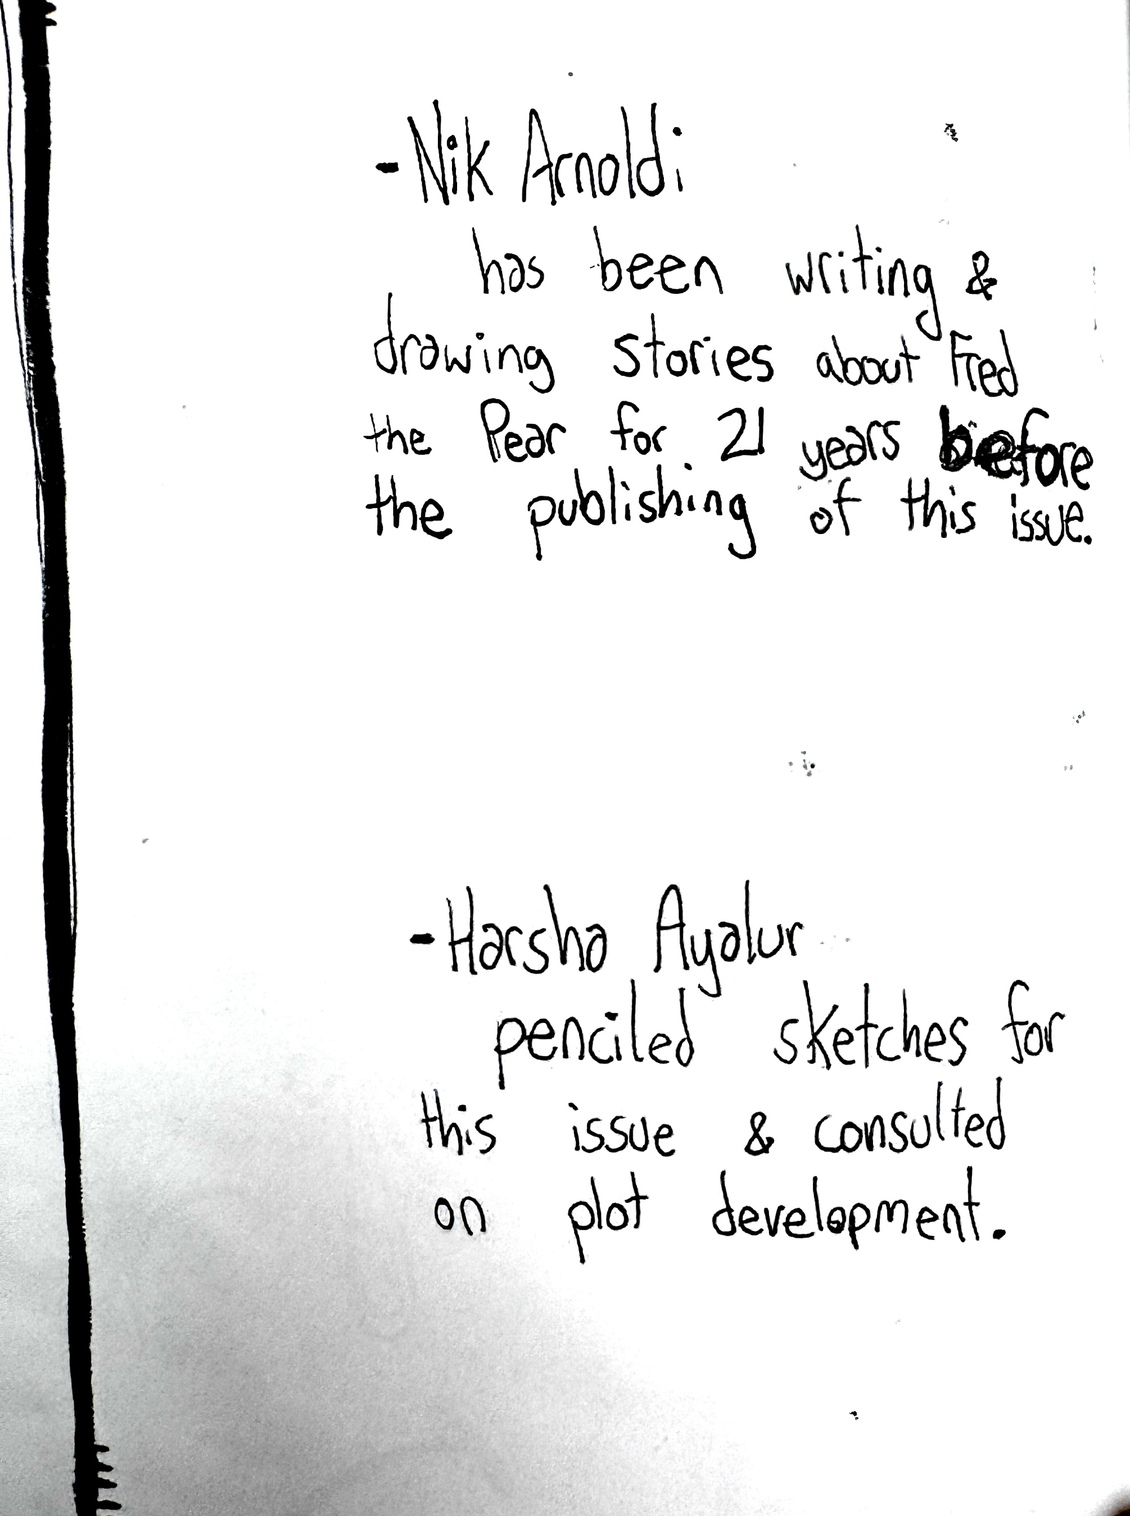 -Nik Arnoldi
has been writing &
drawing stories about Fred
the Pear for 21 years before
the publishing of this issue.
-Harsha Ayalur
penciled sketches for
this issue & consulted
on plot development.